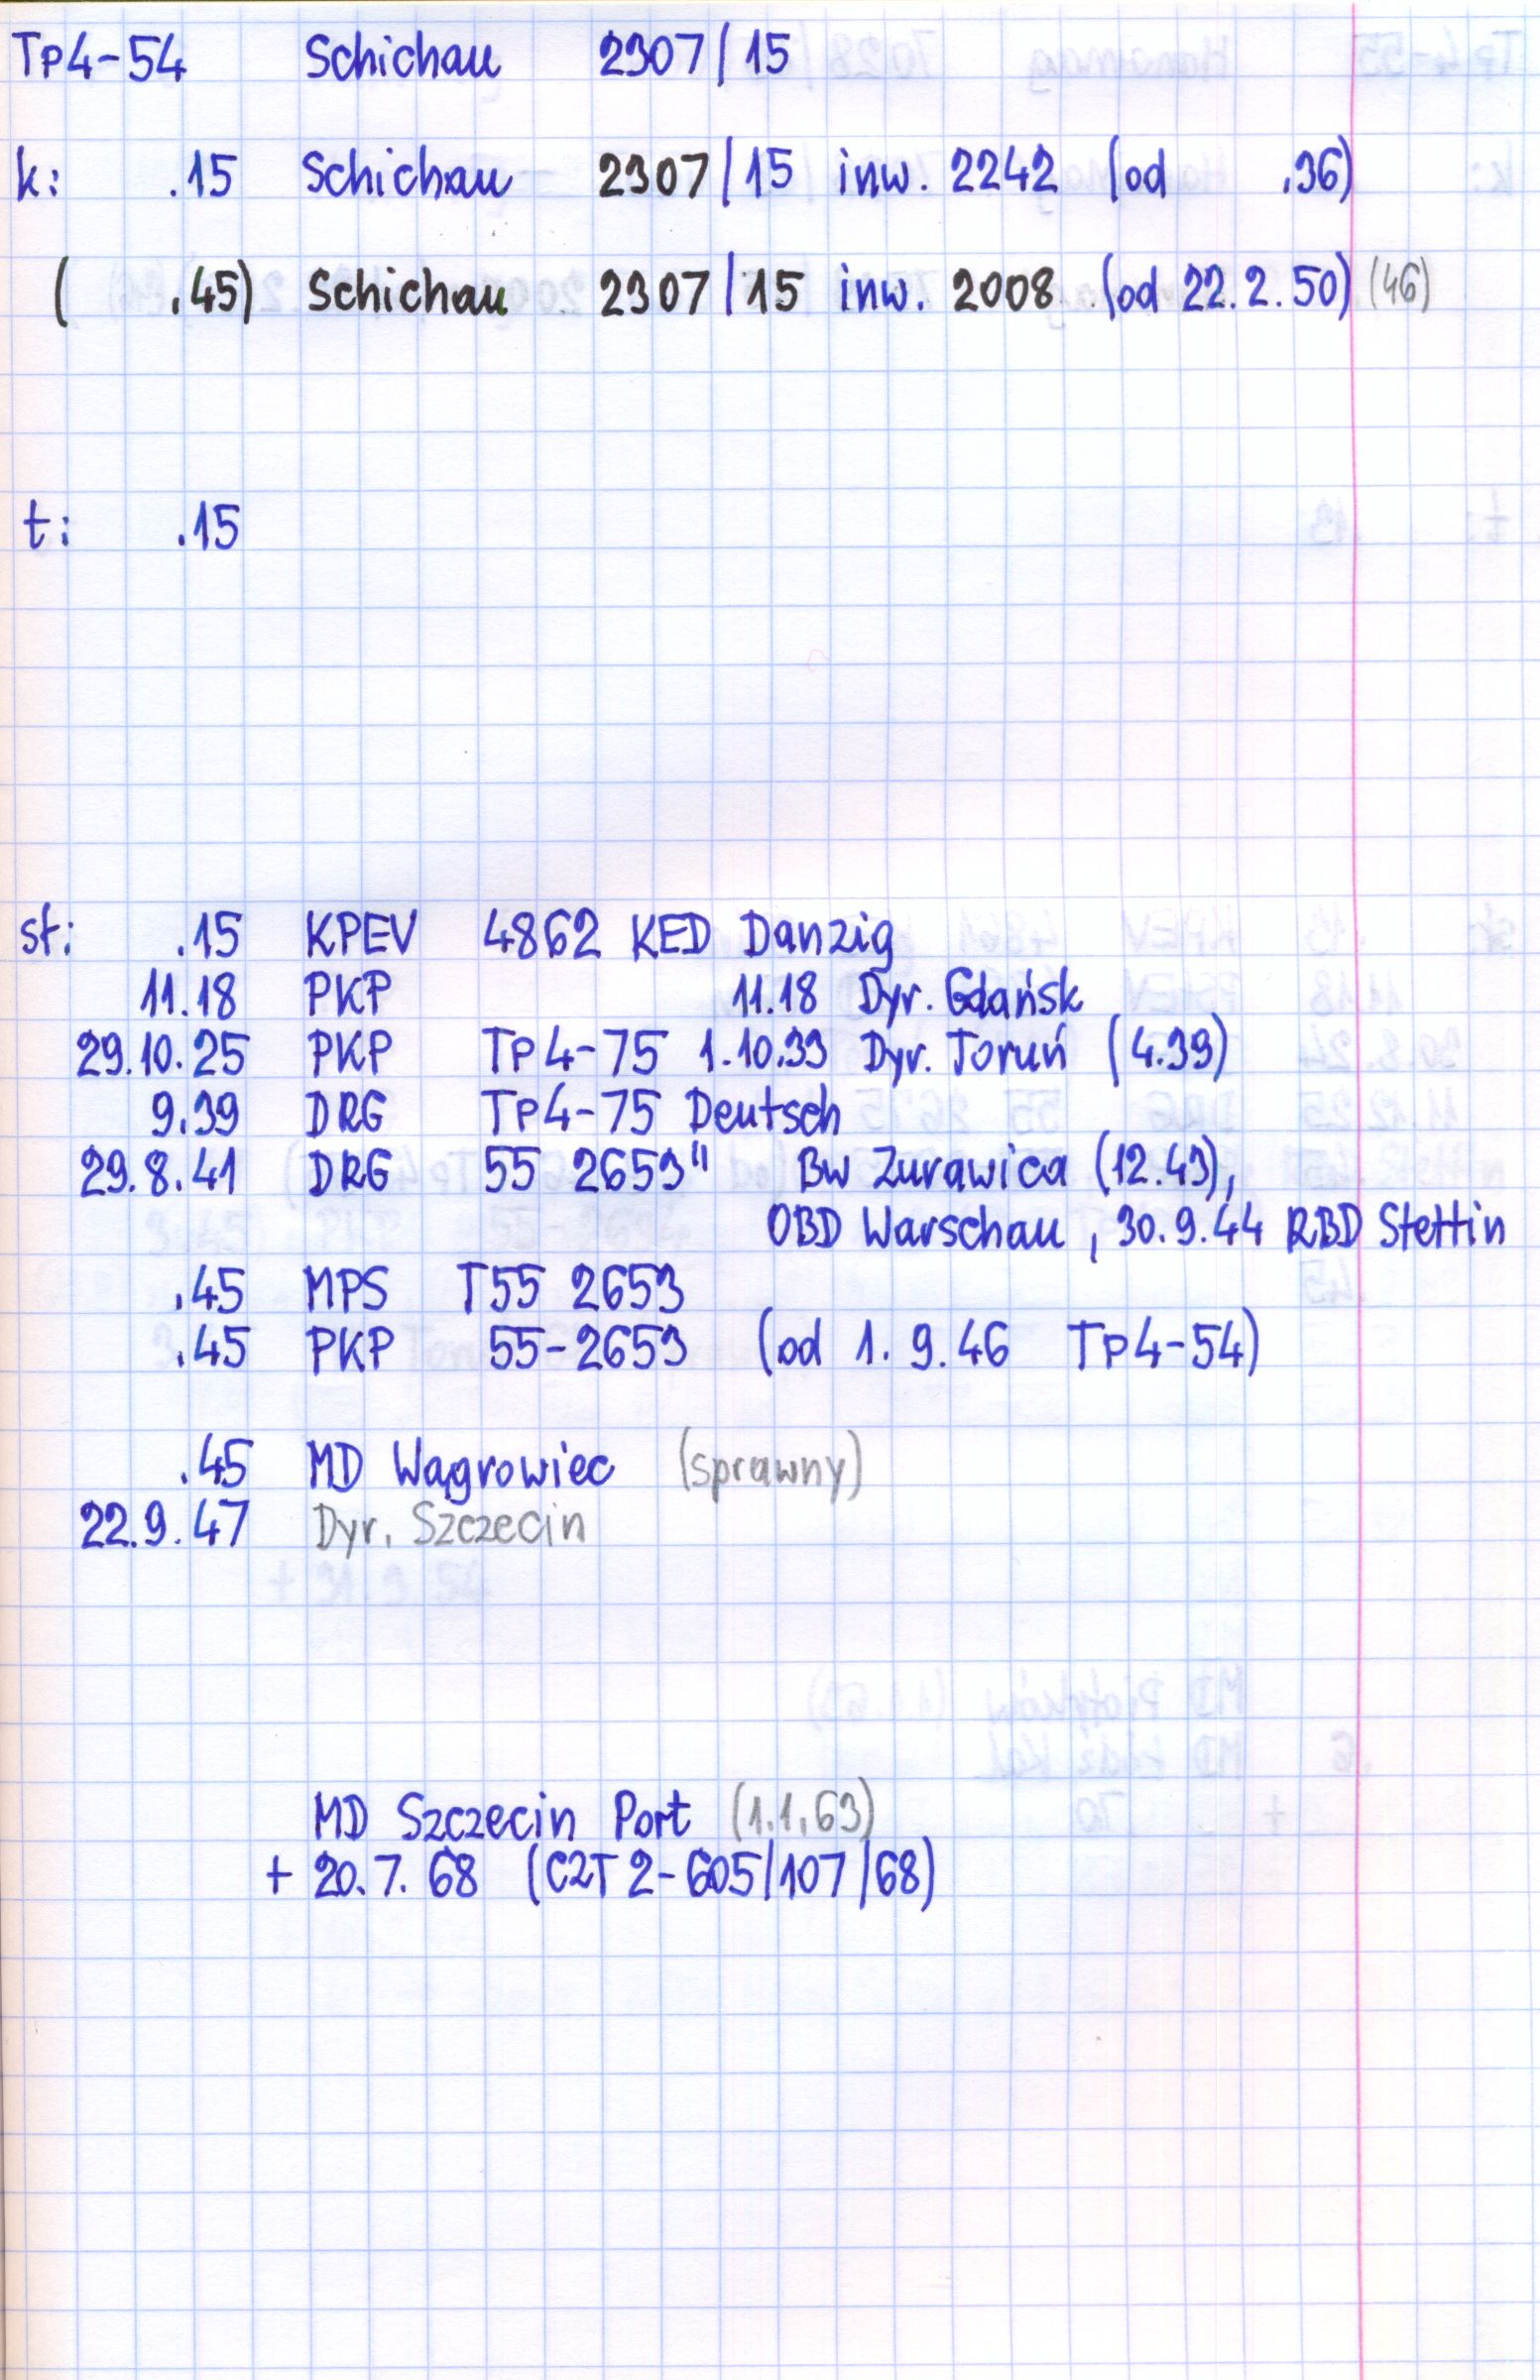 Tp4-54 Schichau 2307/15
k: .15 Schichau 2307/15 inw. 2242 (od .36)
( .45) Schichau 2307/15 inw. 2008 (od 22.2.50) (46)
t: .15
st: .15 KPEV 4862 KED Danzig
11.18 PKP 11.18 Dyr. Gdańsk
29.10.25 PKP Tp4-75 1.10.33 Dyr. Toruń (4.39)
9.39 DRG Tp4-75 Deutsch
29.8.41 DRG 55 2653" Bw Zurawica (12.43),
OBD Warschau, 30.9.44 RBD Stettin
.45 MPS T55 2653
.45 PKP 55-2653 (od 1.9.46 Tp4-54)
.45 MD Wągrowiec (sprawny)
22.9.47 Dyr. Szczecin
MD Szczecin Port (1.1.63)
+ 20.7.68 (C2T2-605/107/68)